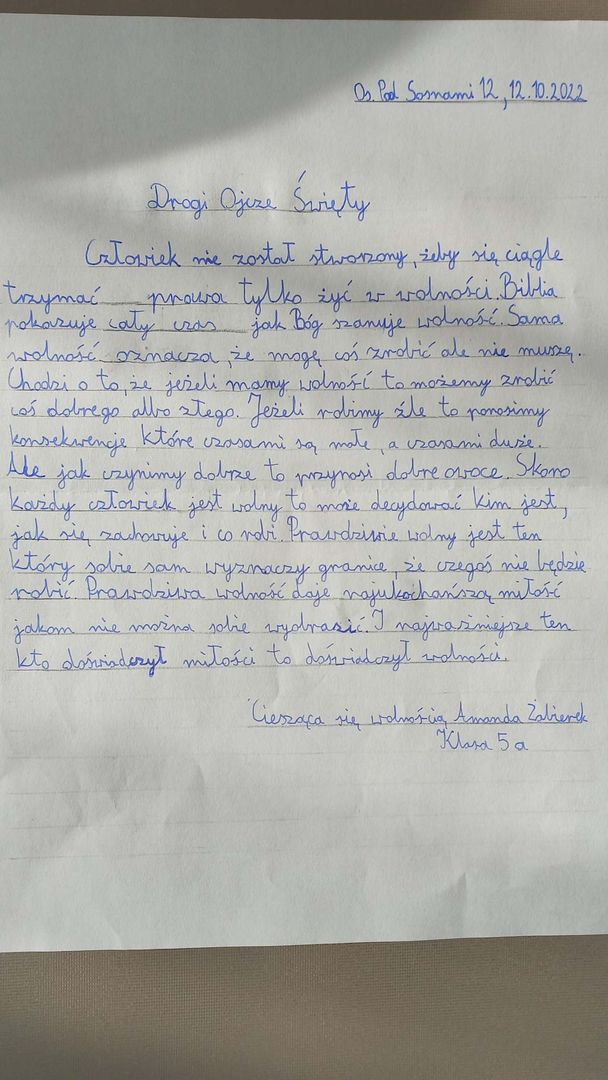 Os. Pod Sosnami 12, 12.10.2022
Drogi Ojcze Święty
Człowiek nie został stworzony, żeby się ciągle
trzymać prawa tylko żyć w wolności. Biblia
pokazuje cały czas jak Bóg szanuje wolność. Sama
wolność oznacza, że mogę coś zrobić ale nie muszę.
Chodzi o to, że jeżeli mamy wolność to możemy zrobić
coś dobrego albo złego. Jeżeli robimy źle to ponosimy
konsekwencje które czasami są małe, a czasami duże.
Ale jak czynimy dobrze to przynosi dobre owoce. Skoro
każdy człowiek jest wolny to może decydować kim jest,
jak się zachowuje i co robi. Prawdziwie wolny jest ten
który sobie sam wyznaczy granice, że czegoś nie będzie
robić. Prawdziwa wolność daje najukochańszą miłość
jakom nie można sobie wyobrazić. I najważniejsze ten
kto doświadczył miłości to doświadczył wolności.
Ciesząca się wolnością Amanda Żabierek
Klasa 5a